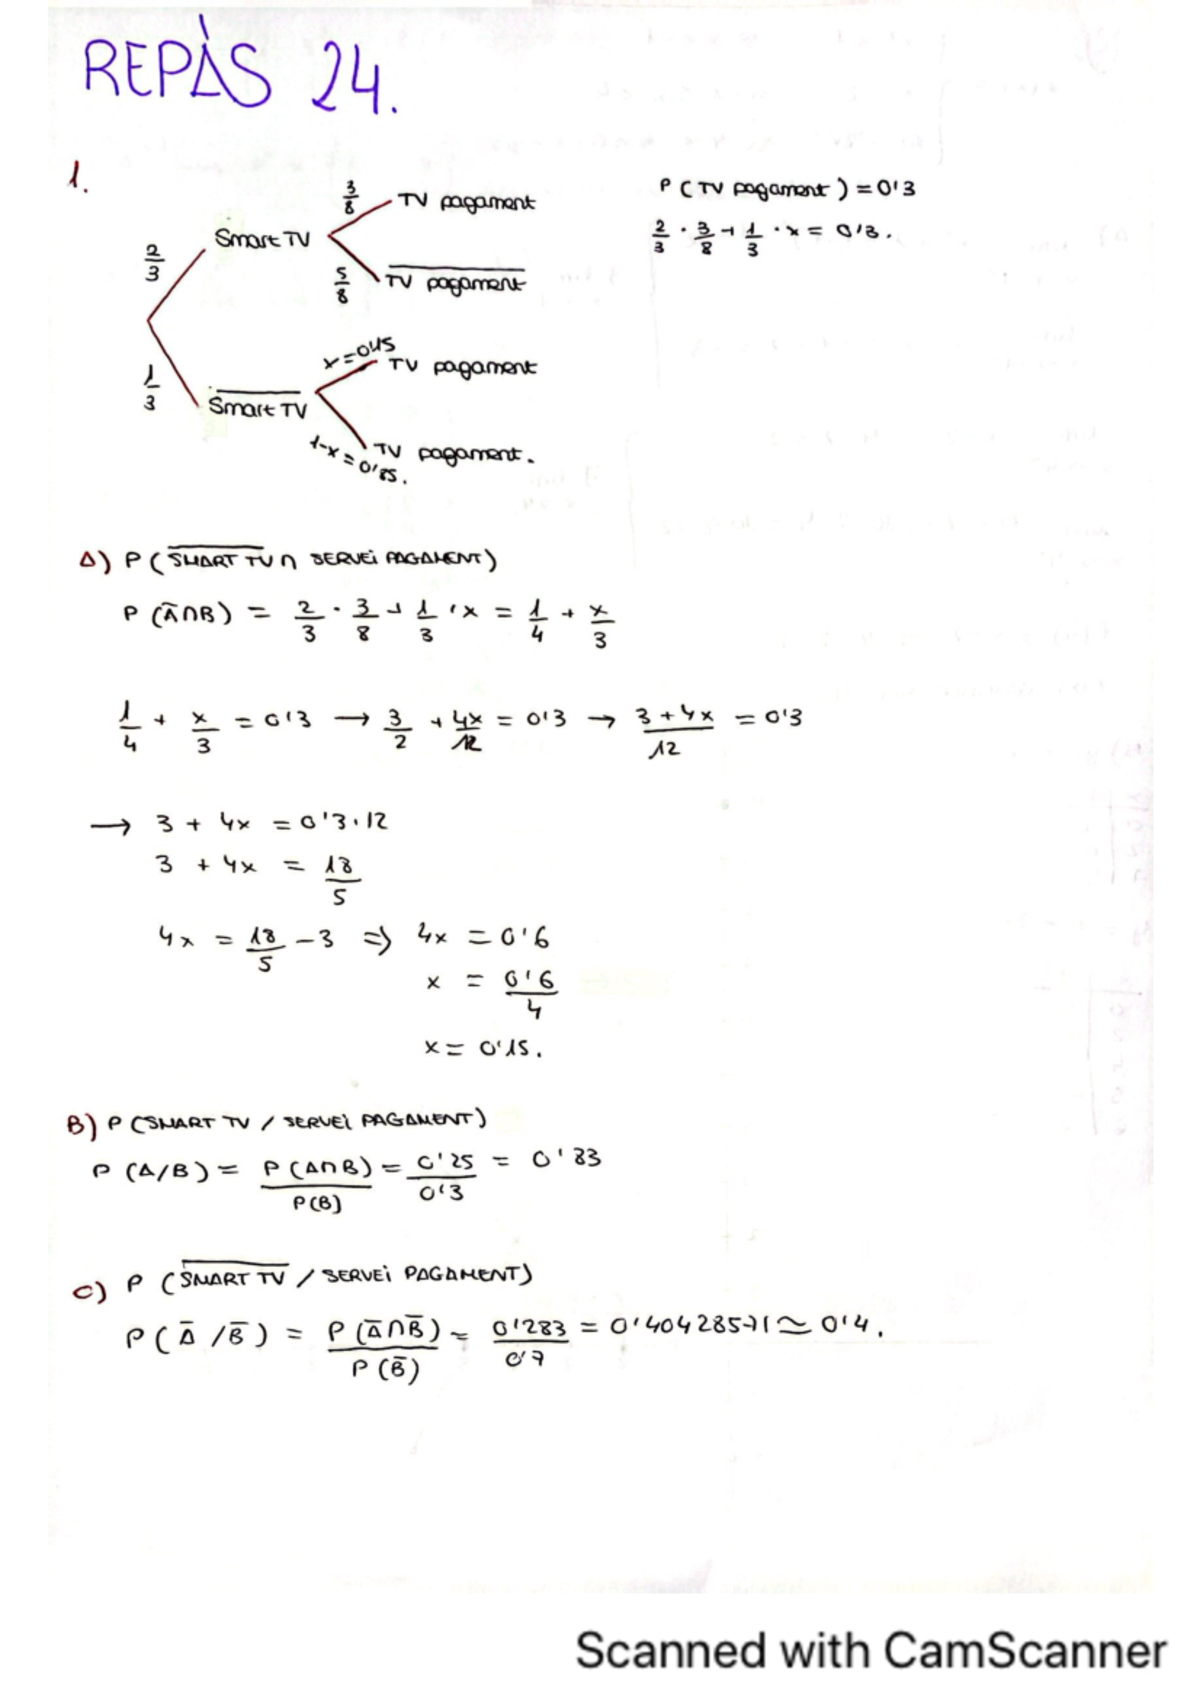 REPÀS 24.
1.
2/3 Smart TV 3/8 TV pagament
5/8 \overline{TV pagament}
1/3 \overline{Smart TV} x=0'15 TV pagament
1-x=0'85. TV pagament.
P(TV pagament)=0'3
2/3 · 3/8 + 1/3 · x = 0'3.
A) P(\overline{SMART TV} ∩ SERVEi PAGAMENT)
P(Ā∩B) = 2/3 · 3/8 + 1/3 · x = 1/4 + x/3
1/4 + x/3 = 0'3 → 3/2 + 4x/12 = 0'3 → (3+4x)/12 = 0'3
→ 3 + 4x = 0'3·12
3 + 4x = 18/5
4x = 18/5 - 3 => 4x = 0'6
x = 0'6/4
x = 0'15.
B) P(SMART TV / SERVEi PAGAMENT)
P(A/B) = P(A∩B)/P(B) = 0'25/0'3 = 0'83
C) P(\overline{SMART TV} / SERVEi PAGAMENT)
P(Ā/B̄) = P(Ā∩B̄)/P(B̄) = 0'283/0'7 = 0'40428571 ≃ 0'4.
Scanned with CamScanner